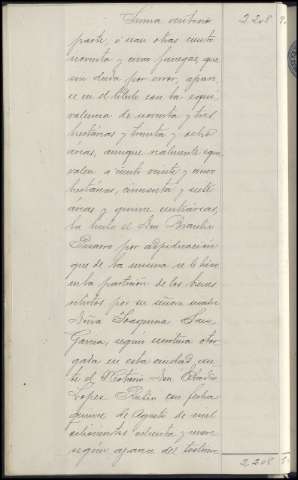 Suma anterior 2208
parte, ó sean otras ciento
noventa y cinco fanegas que
sin duda por error, apare-
ce en el título con la equi-
valencia de noventa y tres
hectáreas y treinta y ocho
áreas, aunque realmente equi-
valen a ciento veinte y cinco
hectáreas, cincuenta y siete
áreas y quince centiáreas,
la hubo el Don Braulio
por adjudicación
que de la misma se le hizo
en la partición de los bienes
relictos por su señora madre
Doña Joaquina
García, según escritura otor-
gada en esta ciudad, an-
te el Notario Don Eladio
Lopez Rubio con fecha
quince de Agosto de mil
ochocientos ochenta y nueve
según aparece del testimo-
2208